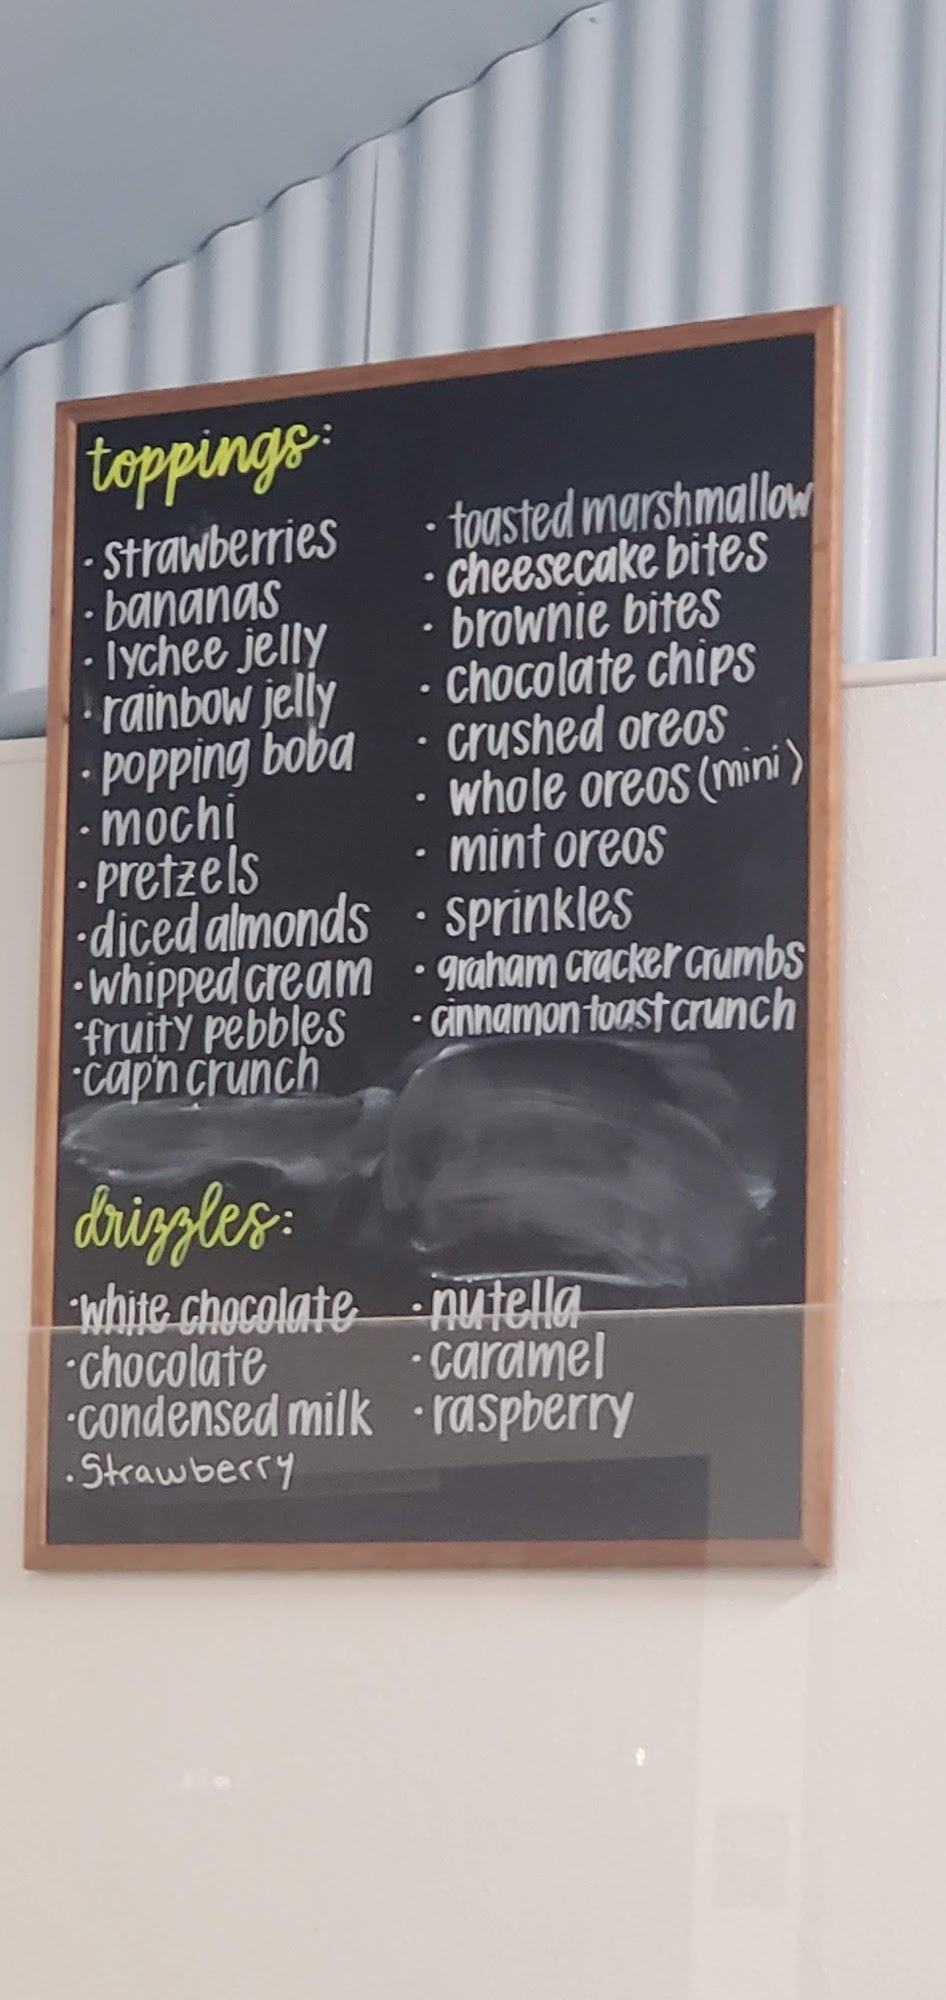 toppings:
· strawberries
· bananas
· lychee jelly
· rainbow jelly
· popping boba
· mochi
· pretzels
· diced almonds
· whipped cream
· fruity pebbles
· cap'n crunch
· toasted marshmallow
· cheesecake bites
· brownie bites
· chocolate chips
· crushed oreos
· whole oreos (mini)
· mint oreos
· sprinkles
· graham cracker crumbs
· cinnamon toast crunch
drizzles:
· white chocolate
· chocolate
· condensed milk
· Strawberry
· nutella
· caramel
· raspberry